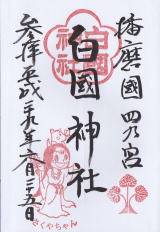 播磨國四乃宮
白國神社
白國
神社
参拝平成二九年六月二五日
さくやちゃん